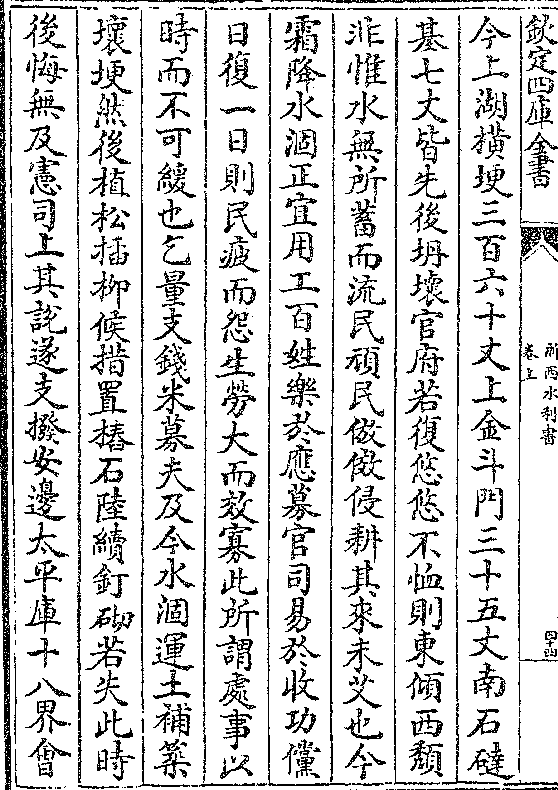 欽定四庫全書
浙西水利書
卷上
四十四
今上湖橫埂三百六十丈上金斗門三十五丈南石䃮
基七丈皆先後坍壞官府若復悠悠不恤則東傾西頹
非惟水無所蓄而流民頑民倣傚侵耕其來未艾也今
霜降水涸正宜用工百姓樂於應募官司易於收功儻
日復一日則民疲而怨生勞大而效寡此所謂處事以
時而不可緩也乞量支錢米募夫及今水涸運土補築
壞埂然後植松插柳候措置樁石陸續釘砌若失此時
後悔無及憲司上其說遂支撥安邊太平庫十八界會